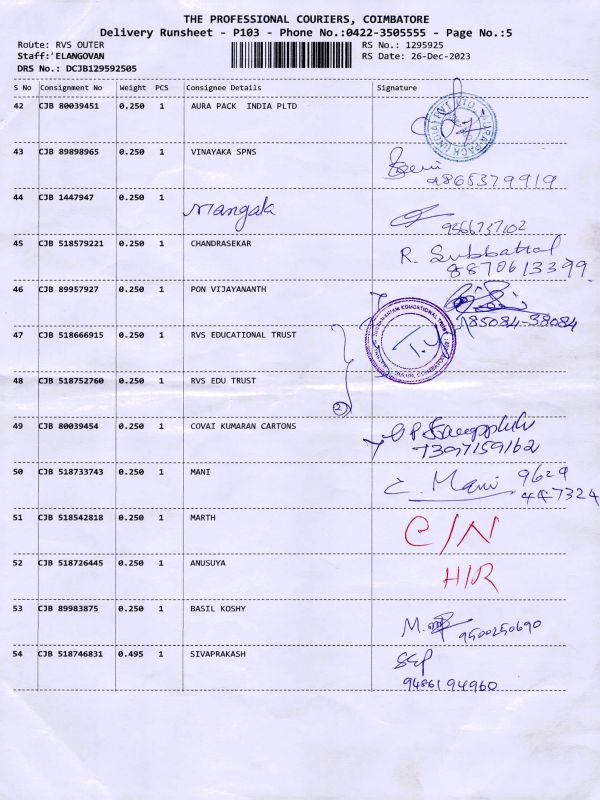 THE PROFESSIONAL COURIERS, COIMBATORE
Delivery Runsheet - P103 - Phone No.:0422-3505555 - Page No.:5
Route: RVS OUTER RS No.: 1295925
Staff: ELANGOVAN RS Date: 26-Dec-2023
DRS No.: DCJB129592505
S No Consignment No Weight PCS Consignee Details Signature
42 CJB 80039451 0.250 1 AURA PACK INDIA PLTD
43 CJB 89898965 0.250 1 VINAYAKA SPNS
9865379919
44 CJB 1447947 0.250 1 Mangala
9566737102
45 CJB 518579221 0.250 1 CHANDRASEKAR R.
8870613399
46 CJB 89957927 0.250 1 PON VIJAYANANTH
85084-38084
47 CJB 518666915 0.250 1 RVS EDUCATIONAL TRUST
48 CJB 518752760 0.250 1 RVS EDU TRUST
2
49 CJB 80039454 0.250 1 COVAI KUMARAN CARTONS
7397159162
50 CJB 518733743 0.250 1 MANI C. Mani 9629
447324
51 CJB 518542818 0.250 1 MARTH C/N
52 CJB 518726445 0.250 1 ANUSUYA H/R
53 CJB 89983875 0.250 1 BASIL KOSHY M. 9500250690
54 CJB 518746831 0.495 1 SIVAPRAKASH
9486194960